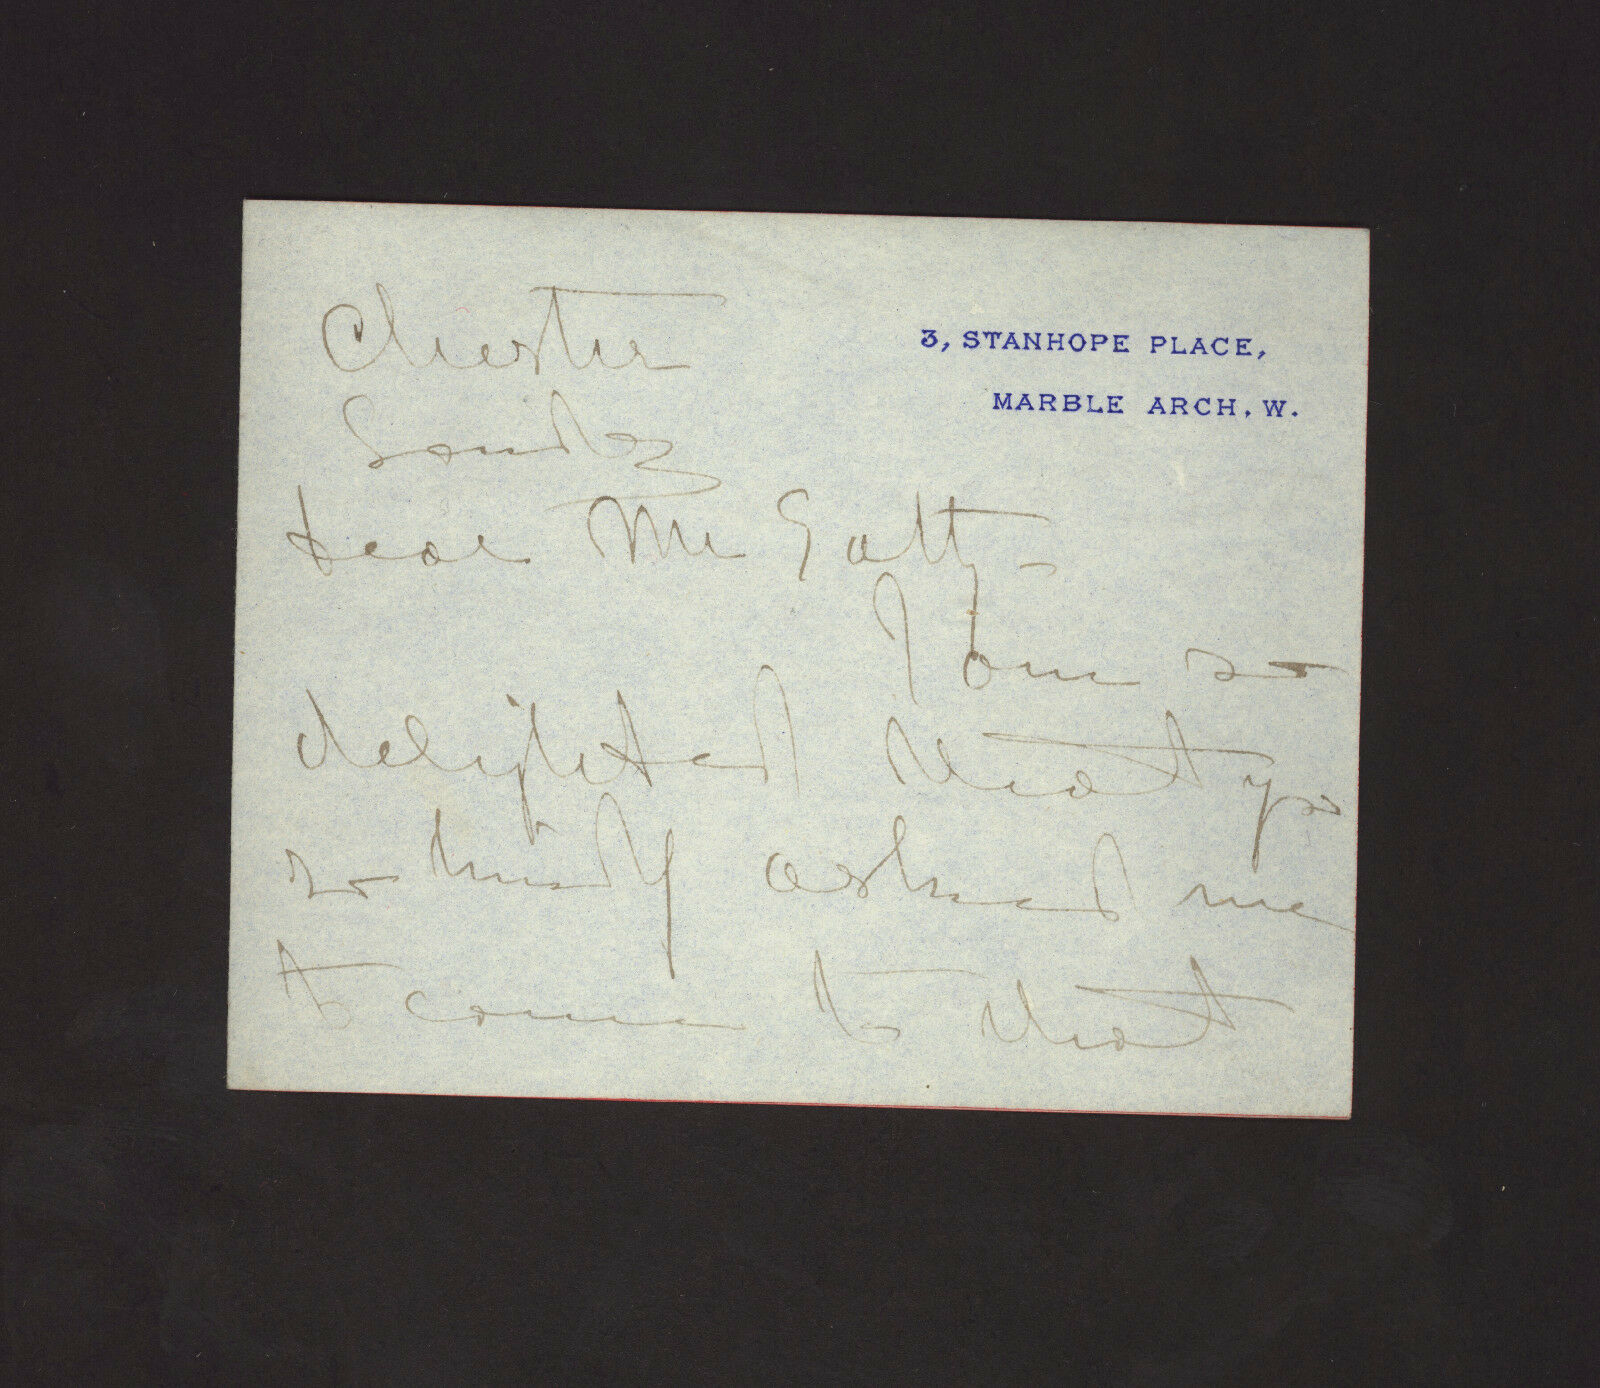 Chester
3, STANHOPE PLACE,
MARBLE ARCH, W.
Sunday
Dear Mr Gatty -
I am so
delighted that you
so kindly asked me
to come to that